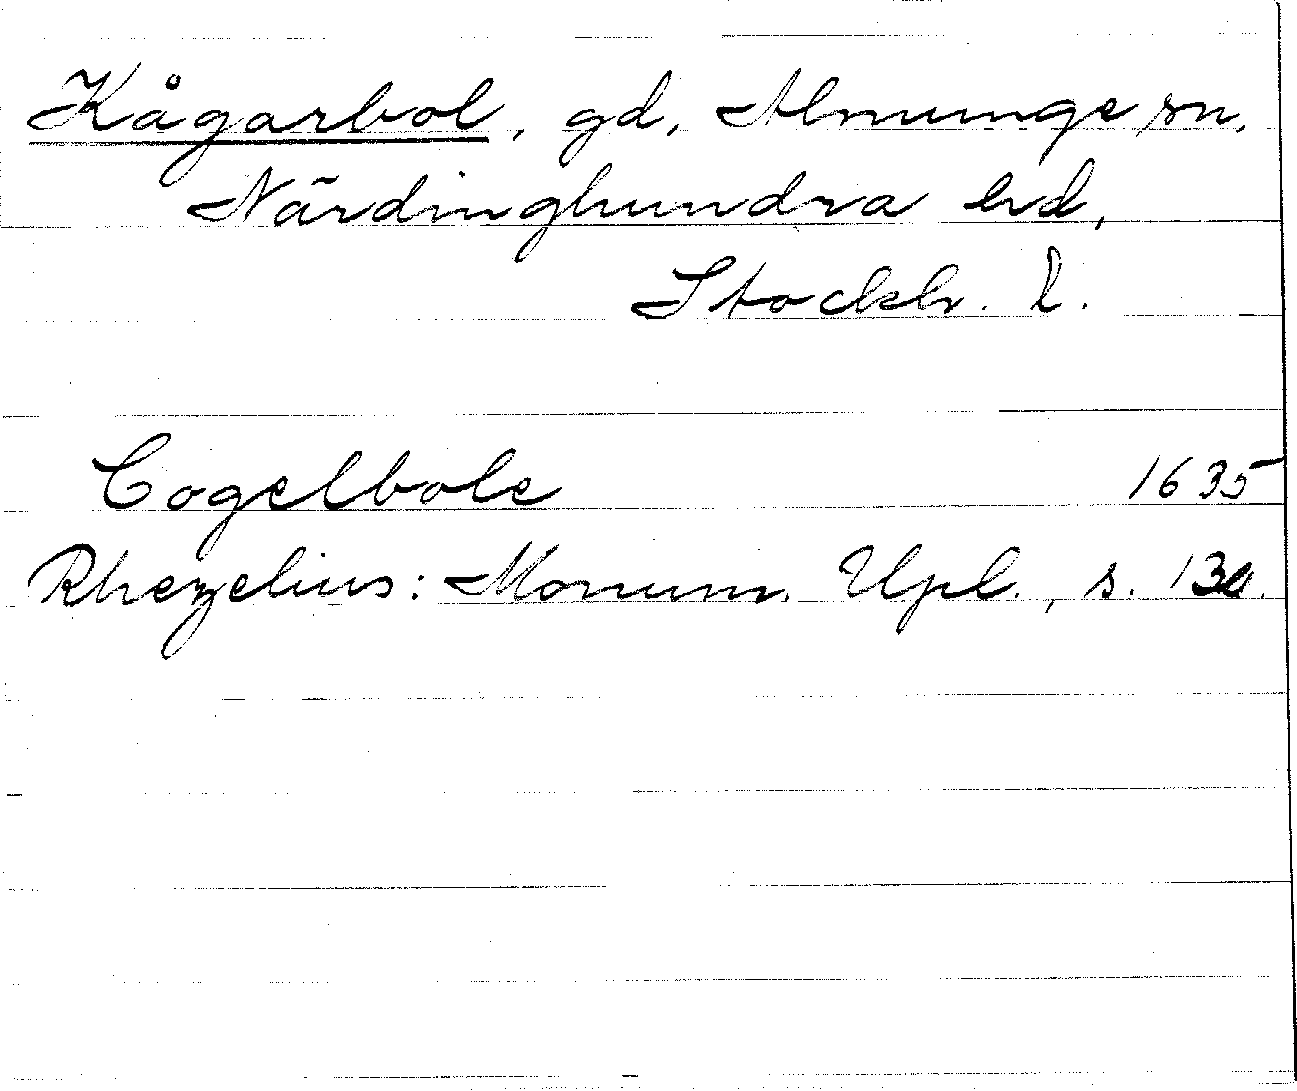 Kågarbol, gd, Almunge sn,
Närdinghundra hd,
Stockh. l.
Cogelbole 1635
Rhezelius: Monum. Upl., s.